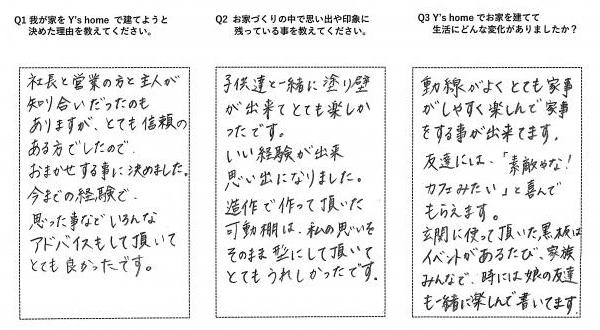 Q1 我が家を Y's home で建てようと
決めた理由を教えてください。
社長と営業の方と主人が
知り合いだったのも
ありますが、とても信頼の
ある方でしたので、
おまかせする事に決めました。
今までの経験で、
思った事など いろんな
アドバイスもして頂いて
とても良かったです。
Q2 お家づくりの中で思い出や印象に
残っている事を教えてください。
子供達と一緒に塗り壁
が出来てとても楽しか
ったです。
いい経験が出来
思い出になりました。
造作で作って頂いた
可動棚は、私の思いを
そのまま形にして頂いて
とてもうれしかったです。
Q3 Y's home でお家を建てて
生活にどんな変化がありましたか？
動線がよくとても家事
がしやすく楽しんで家事
をする事が出来てます。
友達には、「素敵やな!
カフェみたい」と喜んで
もらえます。
玄関に使って頂いた黒板は
イベントがあるたび、家族
みんなで、時には娘の友達
も一緒に楽しんで書いてます。